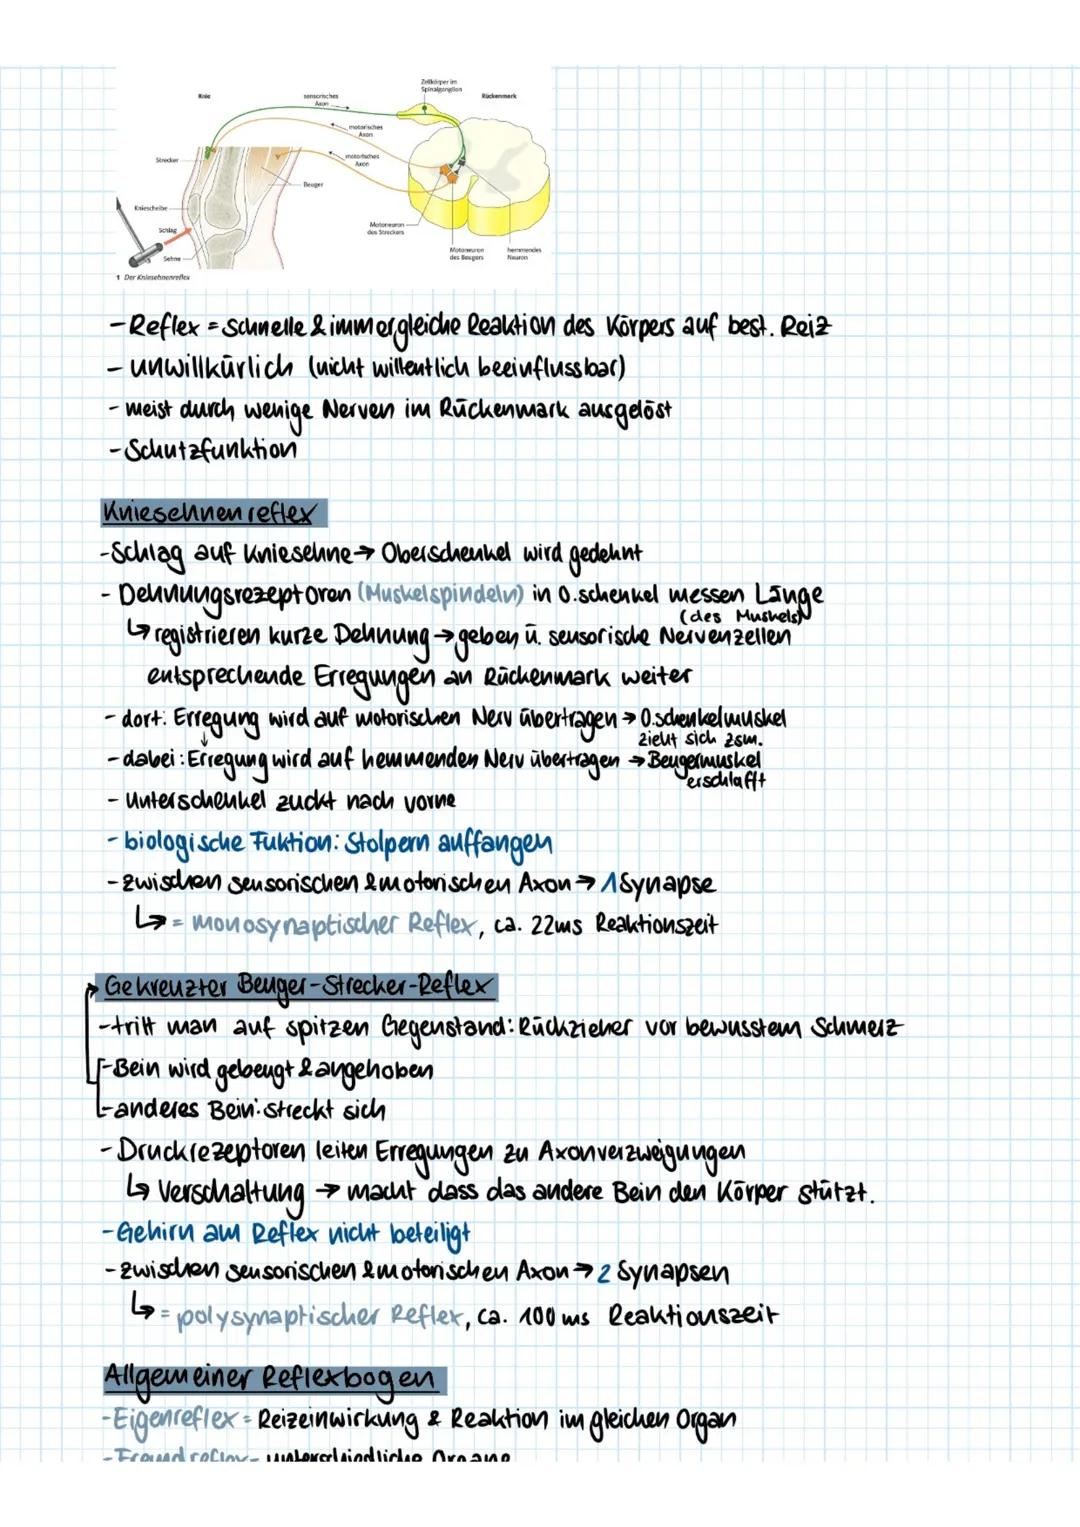 Zellkörper im
Spinalganglion
Knie
sensorisches
Axon
Rückenmark
motorisches
Axon
motorisches
Axon
Strecker
Beuger
Kniescheibe
Schlag
Sehne
Motoneuron
des Streckers
Motoneuron
des Beugers
hemmendes
Neuron
1 Der Kniesehnenreflex
- Reflex = schnelle & immergleiche Reaktion des Körpers auf best. Reiz
- unwillkürlich (nicht willentlich beeinflussbar)
- meist durch wenige Nerven im Rückenmark ausgelöst
- Schutzfunktion
Kniesehnenreflex
- Schlag auf Kniesehne → Oberschenkel wird gedehnt
- Dehnungsrezeptoren (Muskelspindeln) in O.schenkel messen Länge
(des Muskels)
↳ registrieren kurze Dehnung → geben ü. sensorische Nervenzellen
entsprechende Erregungen an Rückenmark weiter
- dort: Erregung wird auf motorischen Nerv übertragen → O.schenkelmuskel
zieht sich zsm.
- dabei: Erregung wird auf hemmenden Nerv übertragen → Beugermuskel
erschlafft
- Unterschenkel zuckt nach vorne
- biologische Fuktion: Stolpern auffangen
- zwischen sensorischen & motorischen Axon → 1 Synapse
↳ = monosynaptischer Reflex, ca. 22ms Reaktionszeit
Gekreuzter Beuger-Strecker-Reflex
- tritt man auf spitzen Gegenstand: Rückzieher vor bewusstem Schmerz
- Bein wird gebeugt & angehoben
- anderes Bein: streckt sich
- Druckrezeptoren leiten Erregungen zu Axonverzweigungen
↳ Verschaltung → macht dass das andere Bein den Körper stützt.
- Gehirn am Reflex nicht beteiligt
- zwischen sensorischen & motorischen Axon → 2 Synapsen
↳ = polysynaptischer Reflex, ca. 100 ms Reaktionszeit
Allgemeiner Reflexbogen
- Eigenreflex = Reizeinwirkung & Reaktion im gleichen Organ
- Fremdreflex = unterschiedliche Organe